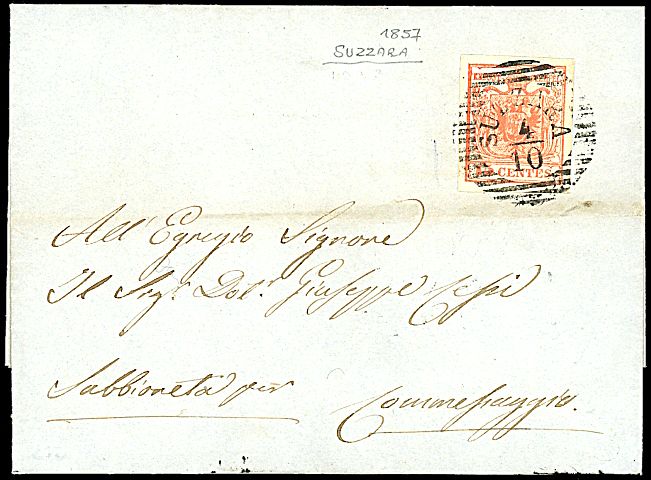 1857
SUZZARA
SUZZARA
4
10
CENTES
All' Egregio Signore
Il Sigr. Dotr. Giuseppe
Sabbioneta per Commessaggio.